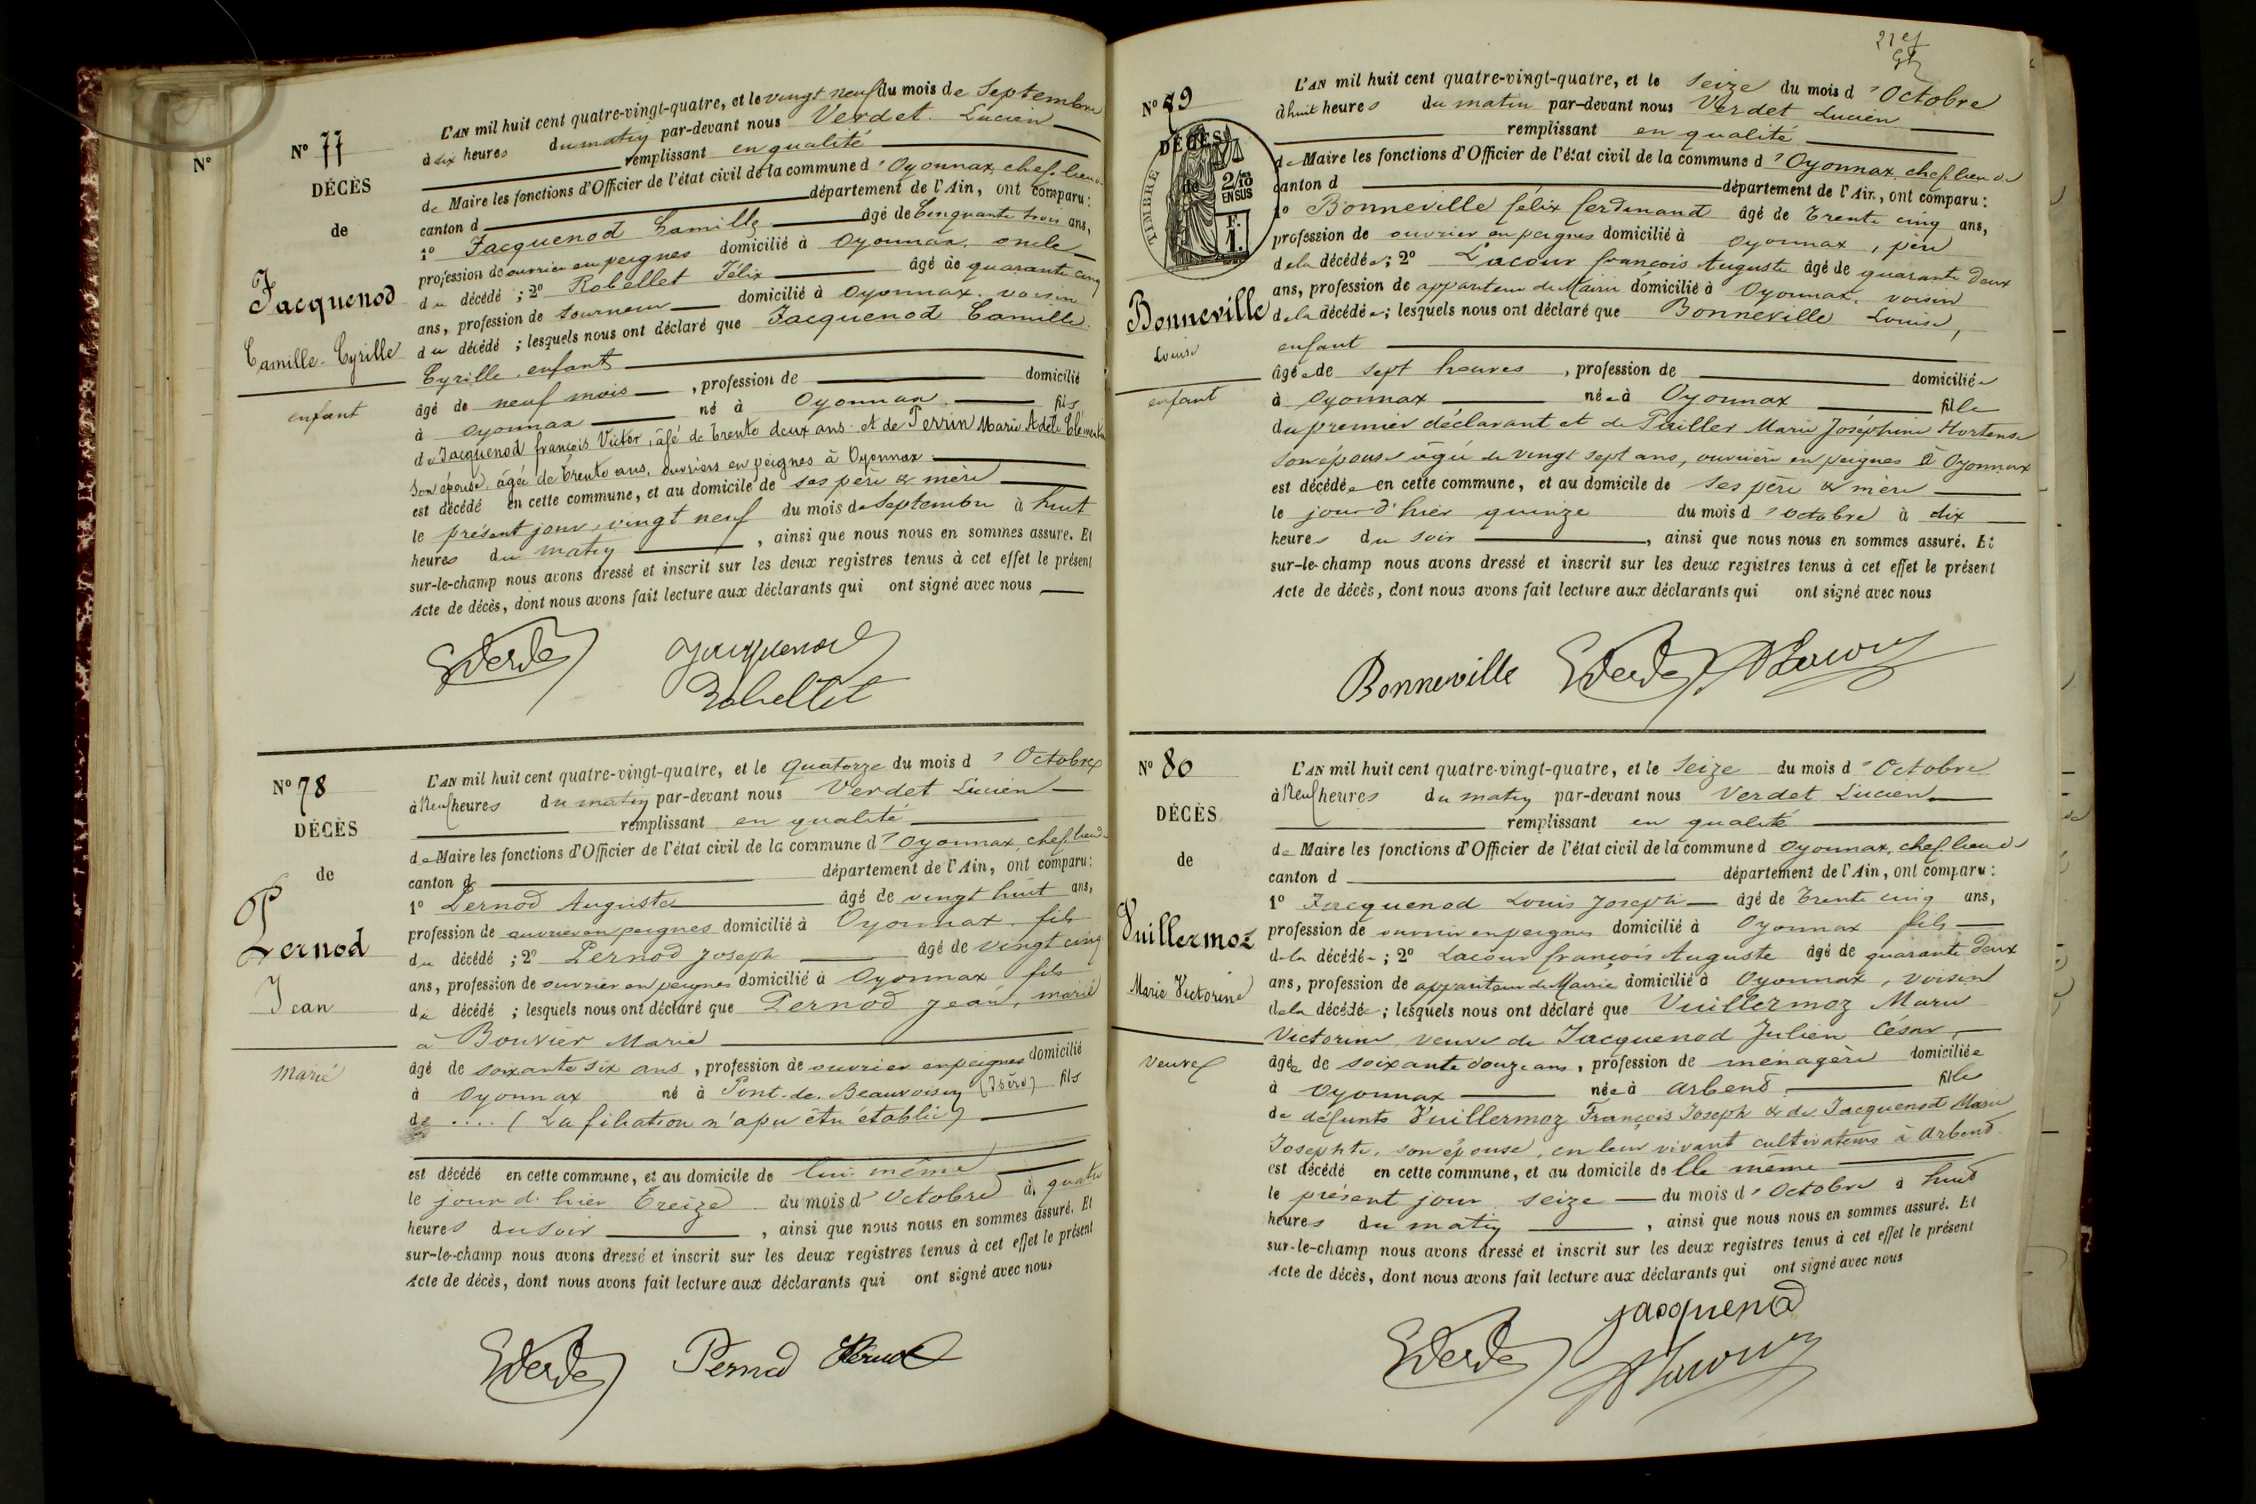 N°
N° 77
DÉCÈS
de
Jacquenod
Camille-Cyrille
enfant
L'AN mil huit cent quatre-vingt-quatre, et le vingt neuf du mois de Septembre
à dix heures du matin par-devant nous Verdet Lucien
remplissant en qualité
de Maire les fonctions d'Officier de l'état civil de la commune d'Oyonnax, chef-lieu de
canton d département de l'Ain, ont comparu:
1° Jacquenod Camille âgé de Cinquante trois ans,
profession de ouvrier en peignes domicilié à Oyonnax, oncle
du décédé ; 2° Robellet Félix âgé de quarante cinq
ans, profession de tourneur domicilié à Oyonnax, voisin
du décédé ; lesquels nous ont déclaré que Jacquenod Camille
Cyrille, enfant
âgé de neuf mois, profession de domicilié
à Oyonnax né à Oyonnax fils
de Jacquenod françois Victor, âgé de trente deux ans et de Perrin Marie Adèle Clémentine
son épouse, âgée de trente ans, ouvriers en peignes à Oyonnax
est décédé en cette commune, et au domicile de ses père & mère
le présent jour, vingt neuf du mois de Septembre à huit
heures du matin, ainsi que nous nous en sommes assuré. Et
sur-le-champ nous avons dressé et inscrit sur les deux registres tenus à cet effet le présent
Acte de décès, dont nous avons fait lecture aux déclarants qui ont signé avec nous
Verdet Jacquenod
Robellet
N° 78
DÉCÈS
de
P
Pernod
Jean
Marié
L'AN mil huit cent quatre-vingt-quatre, et le quatorze du mois d'Octobre
à Neuf heures du matin par-devant nous Verdet Lucien
remplissant en qualité
de Maire les fonctions d'Officier de l'état civil de la commune d'Oyonnax, chef-lieu de
canton d département de l'Ain, ont comparu:
1° Pernod Auguste âgé de vingt huit ans,
profession de ouvrier en peignes domicilié à Oyonnax fils
du décédé ; 2° Pernod Joseph âgé de vingt cinq
ans, profession de ouvrier en peignes domicilié à Oyonnax fils
du décédé ; lesquels nous ont déclaré que Pernod Jean, marié
à Bouvier Marie
âgé de soixante six ans, profession de ouvrier en peignes domicilié
à Oyonnax né à Pont-de-Beauvoisin (Isère) fils
de .... (La filiation n'a pu être établie)
est décédé en cette commune, et au domicile de lui-même
le jour d'hier treize du mois d'Octobre à quatre
heures du soir, ainsi que nous nous en sommes assuré. Et
sur-le-champ nous avons dressé et inscrit sur les deux registres tenus à cet effet le présent
Acte de décès, dont nous avons fait lecture aux déclarants qui ont signé avec nous
Verdet Pernod Pernod
N° 79
DÉCÈS
de
TIMBRE
2/10
EN SUS
F.
1.
Bonneville
Louise
enfant
L'AN mil huit cent quatre-vingt-quatre, et le seize du mois d'Octobre
à huit heures du matin par-devant nous Verdet Lucien
remplissant en qualité
de Maire les fonctions d'Officier de l'état civil de la commune d'Oyonnax chef-lieu de
canton d département de l'Ain, ont comparu:
1° Bonneville félix ferdinand âgé de trente cinq ans,
profession de ouvrier en peignes domicilié à Oyonnax, père
de la décédée; 2° Lacour françois Auguste âgé de quarante deux
ans, profession de appariteur de Mairie domicilié à Oyonnax, voisin
de la décédée; lesquels nous ont déclaré que Bonneville Louise,
enfant
âgée de sept heures, profession de domiciliée
à Oyonnax née à Oyonnax fille
du premier déclarant et de Marie Joséphine Hortense
son épouse âgée de vingt sept ans, ouvrière en peignes à Oyonnax
est décédée en cette commune, et au domicile de ses père & mère
le jour d'hier quinze du mois d'octobre à dix
heures du soir, ainsi que nous nous en sommes assuré. Et
sur-le-champ nous avons dressé et inscrit sur les deux registres tenus à cet effet le présent
Acte de décès, dont nous avons fait lecture aux déclarants qui ont signé avec nous
Bonneville Verdet Lacour
N° 80
DÉCÈS
de
Vuillermoz
Marie Victorine
veuve
L'AN mil huit cent quatre-vingt-quatre, et le seize du mois d'Octobre
à Neuf heures du matin par-devant nous Verdet Lucien
remplissant en qualité
de Maire les fonctions d'Officier de l'état civil de la commune d Oyonnax, chef-lieu de
canton d département de l'Ain, ont comparu:
1° Jacquenod Louis Joseph âgé de trente cinq ans,
profession de ouvrier en peignes domicilié à Oyonnax fils
de la décédée; 2° Lacour françois Auguste âgé de quarante deux
ans, profession de appariteur de Mairie domicilié à Oyonnax, voisin
de la décédée; lesquels nous ont déclaré que Vuillermoz Marie
Victorine, veuve de Jacquenod Julien César,
âgée de soixante douze ans, profession de ménagère domiciliée
à Oyonnax née à Arbend fille
de défunts Vuillermoz François Joseph & de Jacquenod Marie
Josephte, son épouse, en leur vivant cultivateurs à Arbend
est décédé en cette commune, et au domicile de lle même
le présent jour seize du mois d'Octobre à huit
heures du matin, ainsi que nous nous en sommes assuré. Et
sur-le-champ nous avons dressé et inscrit sur les deux registres tenus à cet effet le présent
Acte de décès, dont nous avons fait lecture aux déclarants qui ont signé avec nous
Verdet Jacquenod
Lacour